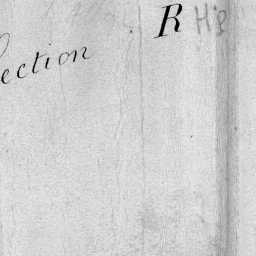 R
ection